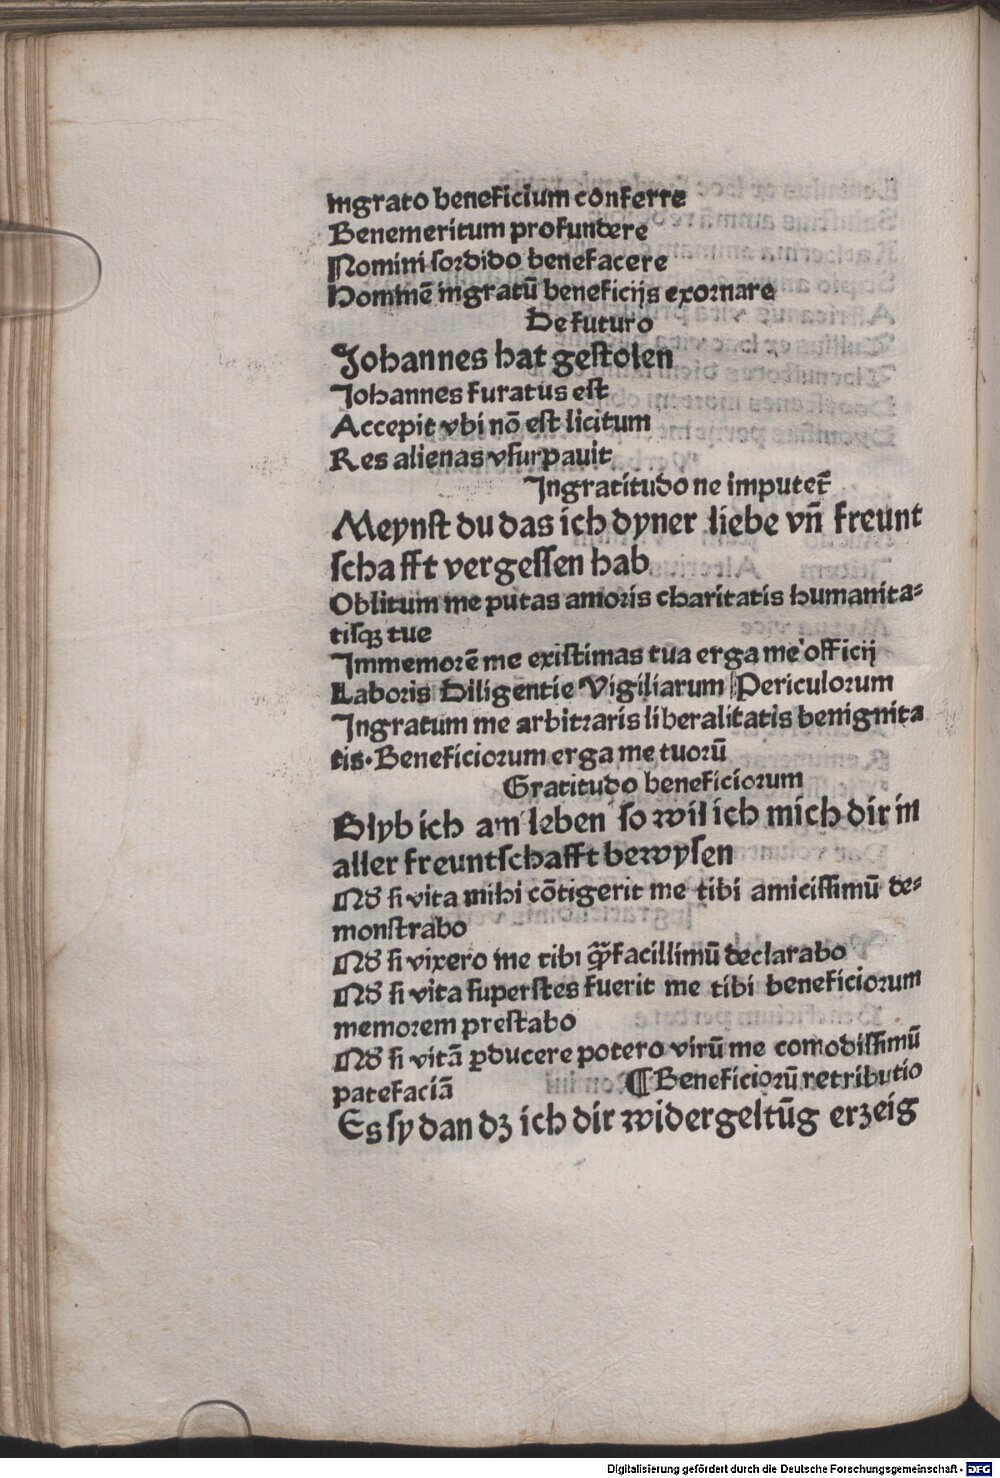 Ingrato beneficium conferre
Benemeritum profundere
Nomini sordido benefacere
Hominē ingratū beneficijs exornare
De futuro
Johannes hat gestolen
Johannes furatus est
Accepit vbi nō est licitum
Res alienas vsurpauit
Ingratitudo ne imputet̄
Meynst du das ich dyner liebe vn̄ freunt
schafft vergessen hab
Oblitum me putas amoris charitatis humanita-
tisqꝫ tue
Immemorē me existimas tua erga me officij
Laboris Diligentie Vigiliarum Periculorum
Ingratum me arbitraris liberalitatis benignita
tis. Beneficiorum erga me tuorū
Gratitudo beneficiorum
Blyb ich am leben so wil ich mich dir in
aller freuntschafft bewysen
Nā si vita mihi cōtigerit me tibi amicissimū de-
monstrabo
Nā si vixero me tibi facillimū declarabo
Nā si vita superstes fuerit me tibi beneficiorum
memorem prestabo
Nā si vitā ꝓducere potero virū me comodissimū
patefaciā ¶ Beneficiorū retributio
Es sy dan dꝫ ich dir widergeltūg erzeig
Digitalisierung gefördert durch die Deutsche Forschungsgemeinschaft - DFG